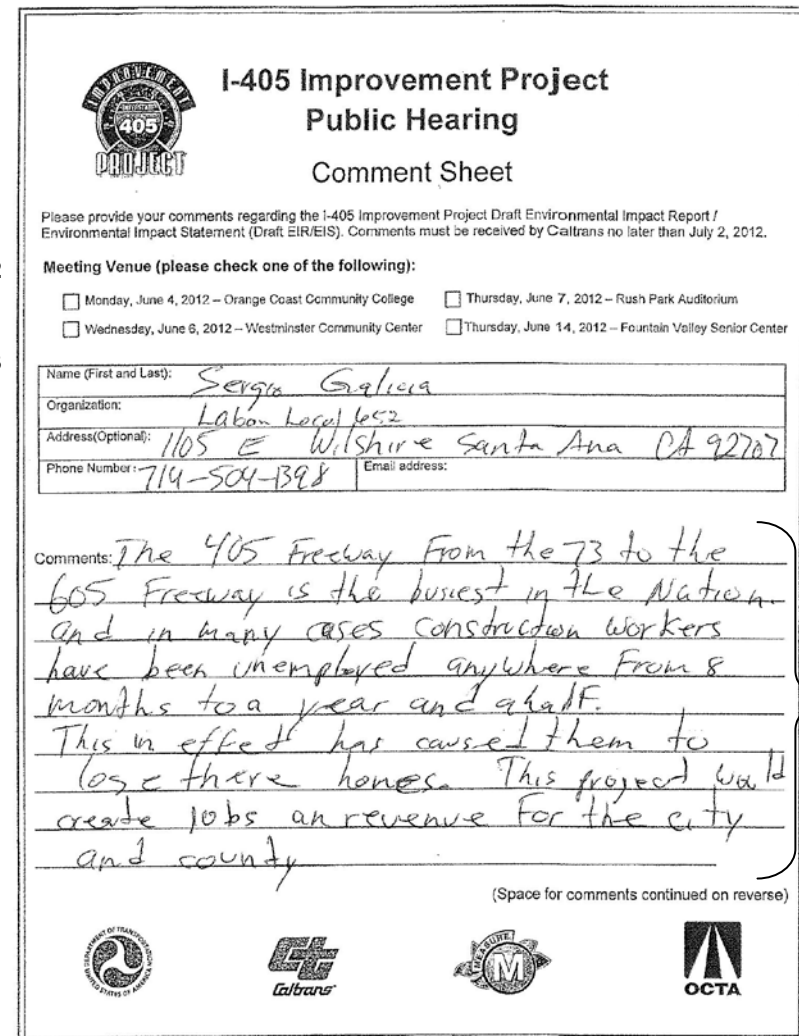 IMPROVEMENT
405
PROJECT
I-405 Improvement Project
Public Hearing
Comment Sheet
Please provide your comments regarding the I-405 Improvement Project Draft Environmental Impact Report /
Environmental Impact Statement (Draft EIR/EIS). Comments must be received by Caltrans no later than July 2, 2012.
Meeting Venue (please check one of the following):
Monday, June 4, 2012 – Orange Coast Community College
Thursday, June 7, 2012 – Rush Park Auditorium
Wednesday, June 6, 2012 – Westminster Community Center
Thursday, June 14, 2012 – Fountain Valley Senior Center
Name (First and Last): Sergio Galicia
Organization: Labor Local 652
Address(Optional): 1105 E Wilshire Santa Ana CA 92707
Phone Number: 714-504-1398 Email address:
Comments: The 405 Freeway From the 73 to the
605 Freeway is the busiest in the Nation.
and in many cases construction workers
have been unemployed anywhere From 8
months to a year and a half.
This in effect has caused them to
lose there homes. This project would
create jobs an revenue For the city
and county
(Space for comments continued on reverse)
DEPARTMENT OF TRANSPORTATION
UNITED STATES OF AMERICA
Caltrans
MEASURE
M
OCTA